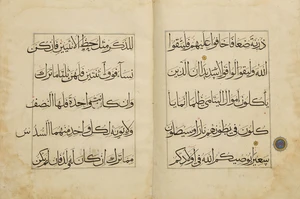 ذرية ضعافا خافوا عليهم فليتقوا
الله وليقولوا قولا سديدا ان الذين
ياكلون اموال اليتامى ظلما انما يا
كلون في بطونهم نارا وسيصلون
سعيرا يوصيكم الله في اولادكم
للذكر مثل حظ الانثيين فان كن
نساء فوق اثنتين فلهن ثلثا ما ترك
وان كانت واحدة فلها النصف
ولابويه لكل واحد منهما السدس
مما ترك ان كان له ولد فان لم يكن